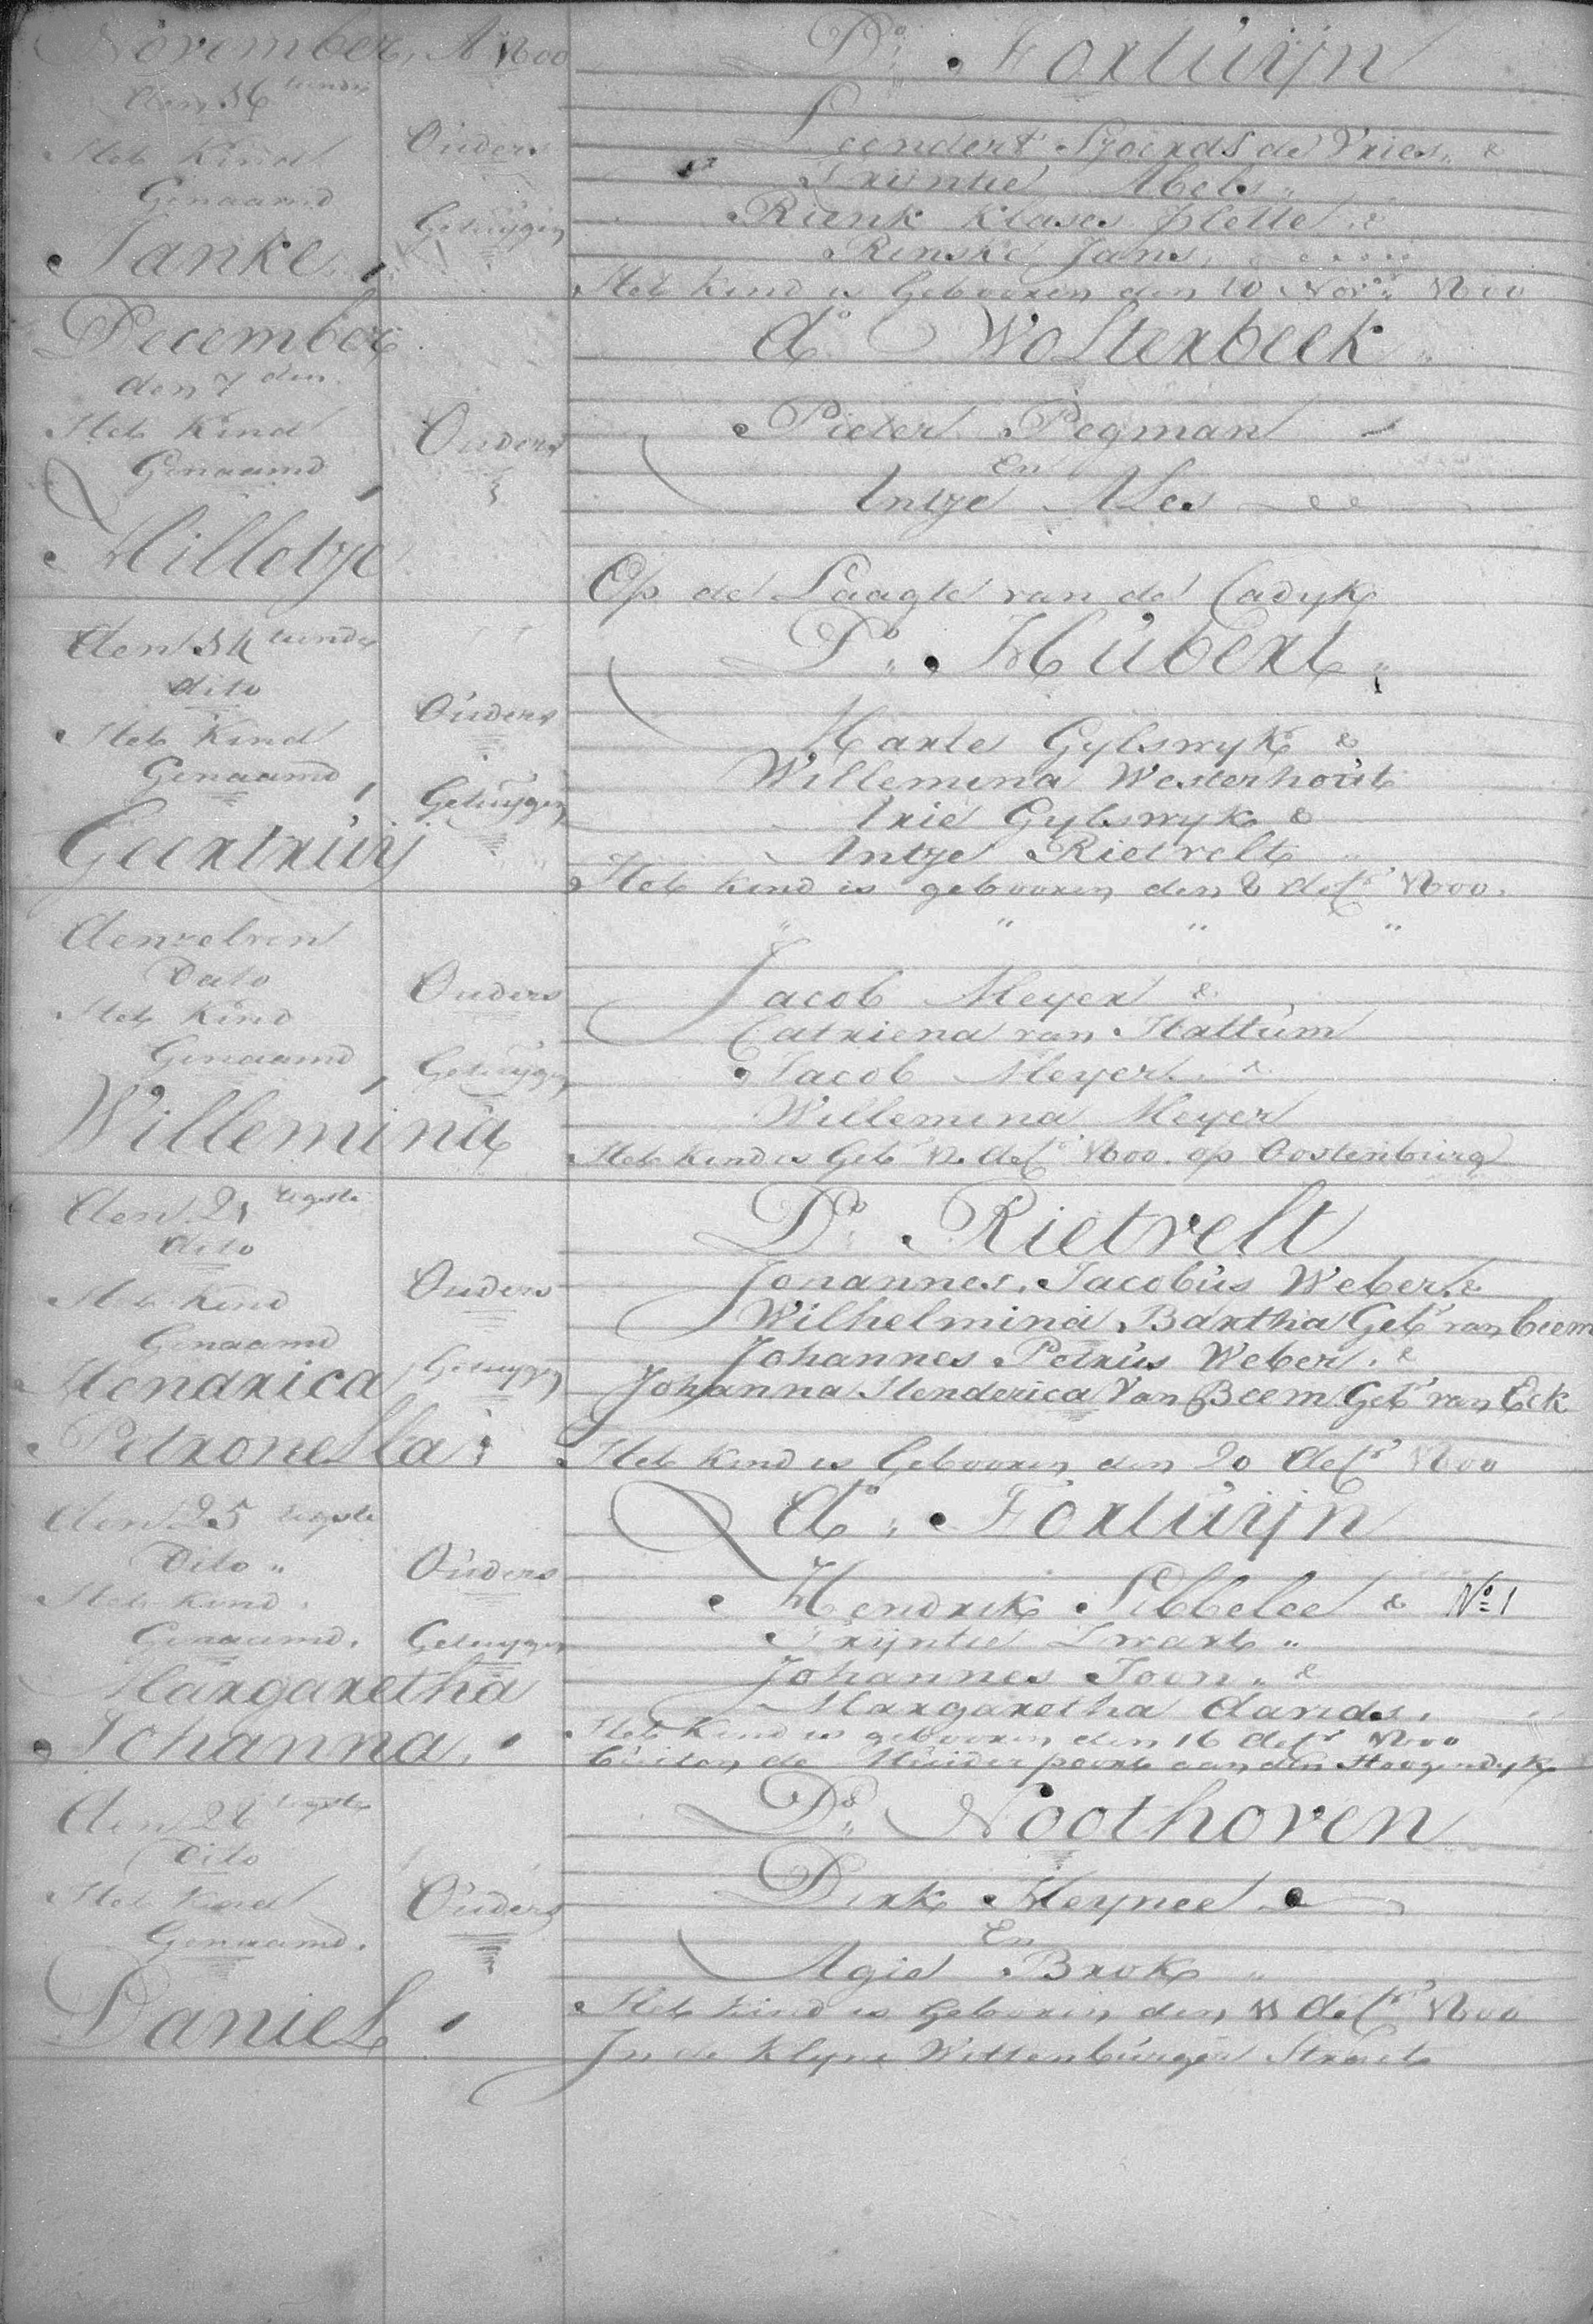 November, A 1800
den 16 tiende
Het Kind
Genaamd
Janke
Ouders
Getuijgen
Ds. Fortuijn
Leendert Sjoerds de Vries &
Trijntie Abels
Rienk Klases &
Rinske Jans
Het Kind is Gebooren den 10 Novr. 1800
December
den 7 den
Het Kind
Genaamd
Hilletje
Ouders
do Wosterbeek
Pieter Pegman
En
Antje Ales
Op de Laagte van de Cadyk
den 14 tiende
dito
Het Kind
Genaamd
Geertruij
Ouders
Getuijgen
Ds. Hubert
Harte Gylswyk &
Willemina Westerhout
Arie Gylswyk &
Antje Rietvelt
Het kind is gebooren den 8 decr. 1800.
denzelven
Dato
Het Kind
Genaamd
Willemina
Ouders
Getuijgen
" " " "
Jacob Meyer &
Catriena van Hattum
Jacob Meyer &
Willemina Meyer
Het Kind is Geb. 12 decr. 1800. op Oostenburg
den 21 tigste
dito
Het Kind
Genaamd
Hendrica
Petronella
Ouders
Getuijgen
Ds. Rietvelt
Johannes Jacobus Weber &
Wilhelmina Bartha Geb. van Ceem
Johannes Petrus Weber. &
Johanna Henderica Van Beem Geb. van Eck
Het Kind is Gebooren den 20 decr. 1800
den 25 tigste
Dito
Het Kind
Genaamd.
Margaretha
Johanna
Ouders
Getuijgen
do. Fortuijn
Hendrik Sibbelee & No. 1
Trijntie Zwart
Johannes Toon &
Margaretha davids.
Het Kind is gebooren den 16 decr 1800
buiten de Muider poort aan den Hoogendyk
den 28 tigste
Dito
Het Kind
Genaamd.
Daniel
Ouders
Ds. Noothoven
Dirk Meynee
En
Agie Brok
Het kind is Gebooren den 11 decr. 1800
In de Klyne Wittenburger Straat